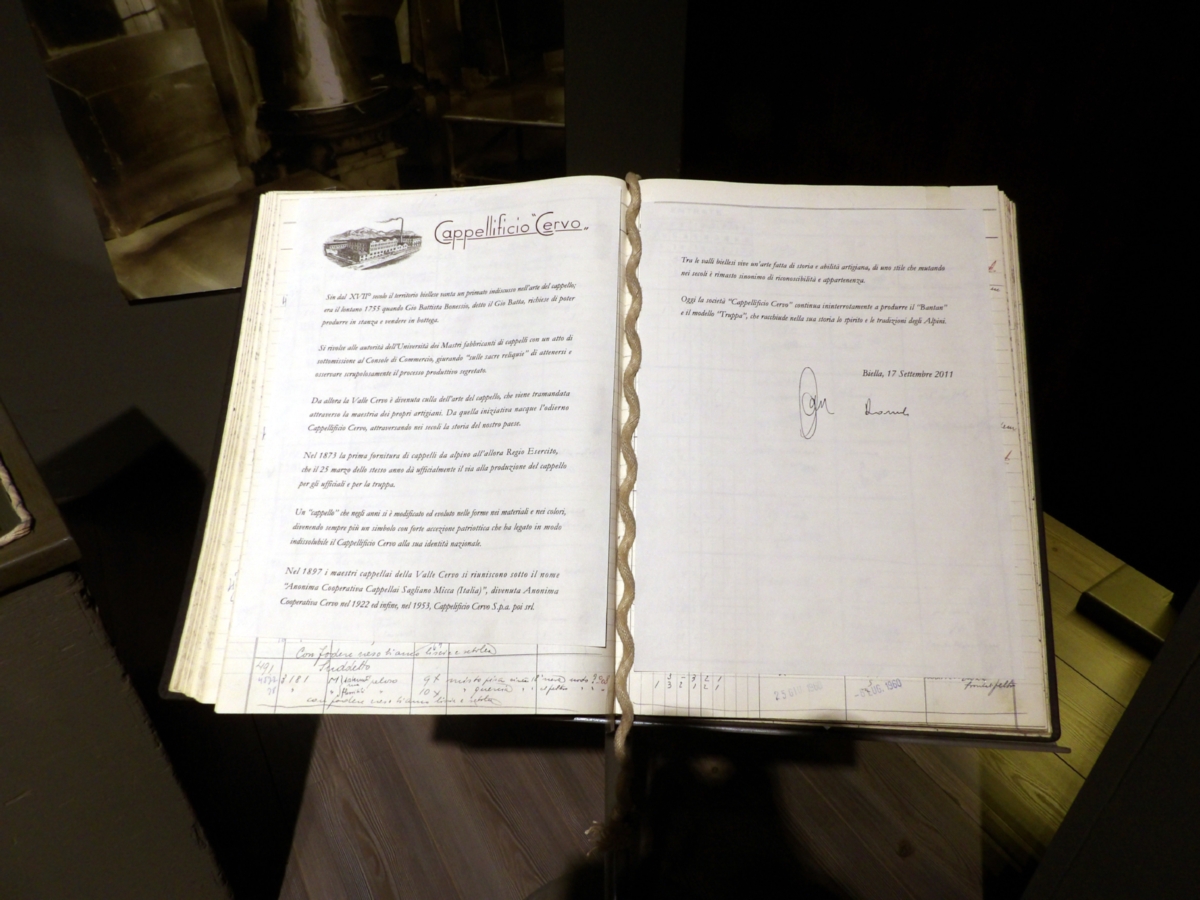 Cappellificio "Cervo"
Sin dal XVII° secolo il territorio biellese vanta un primato indiscusso nell'arte del cappello;
era il lontano 1755 quando Gio Battista Bonessio, detto il Gio Batta, richiese di poter
produrre in stanza e vendere in bottega.
Si rivolse alle autorità dell'Università dei Mastri fabbricanti di cappelli con un atto di
sottomissione al Console di Commercio, giurando "sulle sacre reliquie" di attenersi e
osservare scrupolosamente il processo produttivo segretato.
Da allora la Valle Cervo è divenuta culla dell'arte del cappello, che viene tramandata
attraverso la maestria dei propri artigiani. Da quella iniziativa nacque l'odierno
Cappellificio Cervo, attraversando nei secoli la storia del nostro paese.
Nel 1873 la prima fornitura di cappelli da alpino all'allora Regio Esercito,
che il 25 marzo dello stesso anno dà ufficialmente il via alla produzione del cappello
per gli ufficiali e per la truppa.
Un "cappello" che negli anni si è modificato ed evoluto nelle forme nei materiali e nei colori,
divenendo sempre più un simbolo con forte accezione patriottica che ha legato in modo
indissolubile il Cappellificio Cervo alla sua identità nazionale.
Nel 1897 i maestri cappellai della Valle Cervo si riuniscono sotto il nome
"Anonima Cooperativa Cappellai Sagliano Micca (Italia)", divenuta Anonima
Cooperativa Cervo nel 1922 ed infine, nel 1953, Cappellificio Cervo S.p.a. poi srl.
Con fodere raso bianco liscio e setola
491 Suddetto
3181
con fodere raso bianco liscio e setola
Tra le valli biellesi vive un'arte fatta di storia e abilità artigiana, di uno stile che mutando
nei secoli è rimasto sinonimo di riconoscibilità e appartenenza.
Oggi la società "Cappellificio Cervo" continua ininterrottamente a produrre il "Bantam"
e il modello "Truppa", che racchiude nella sua storia lo spirito e le tradizioni degli Alpini.
Biella, 17 Settembre 2011
1 3 2 1 2 1